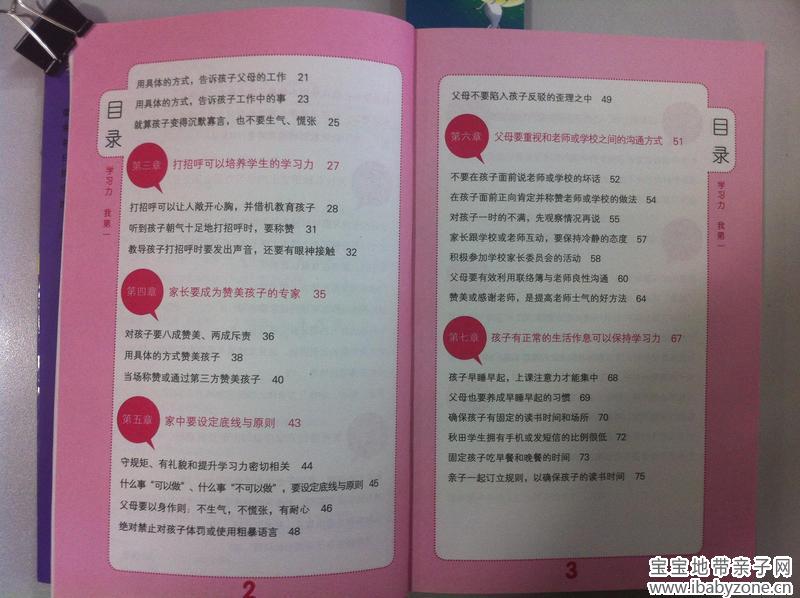 用具体的方式，告诉孩子父母的工作 21
用具体的方式，告诉孩子工作中的事 23
就算孩子变得沉默寡言，也不要生气、慌张 25
目录
学习力 我第一
第三章 打招呼可以培养学生的学习力 27
打招呼可以让人敞开心胸，并借机教育孩子 28
听到孩子朝气十足地打招呼时，要称赞 31
教导孩子打招呼时要发出声音，还要有眼神接触 32
第四章 家长要成为赞美孩子的专家 35
对孩子要八成赞美、两成斥责 36
用具体的方式赞美孩子 38
当场称赞或通过第三方赞美孩子 40
第五章 家中要设定底线与原则 43
守规矩、有礼貌和提升学习力密切相关 44
什么事“可以做”、什么事“不可以做”，要设定底线与原则 45
父母要以身作则：不生气，不慌张，有耐心 46
绝对禁止对孩子体罚或使用粗暴语言 48
2
父母不要陷入孩子反驳的歪理之中 49
目录
学习力 我第一
第六章 父母要重视和老师或学校之间的沟通方式 51
不要在孩子面前说老师或学校的坏话 52
在孩子面前正向肯定并称赞老师或学校的做法 54
对孩子一时的不满，先观察情况再说 55
家长跟学校或老师互动，要保持冷静的态度 57
积极参加学校家长委员会的活动 58
父母要有效利用联络簿与老师良性沟通 60
赞美或感谢老师，是提高老师士气的好方法 64
第七章 孩子有正常的生活作息可以保持学习力 67
孩子早睡早起，上课注意力才能集中 68
父母也要养成早睡早起的习惯 69
确保孩子有固定的读书时间和场所 70
秋田学生拥有手机或发短信的比例很低 72
固定孩子吃早餐和晚餐的时间 73
亲子一起订立规则，以确保孩子的读书时间 75
3
宝宝地带亲子网
www.ibabyzone.cn